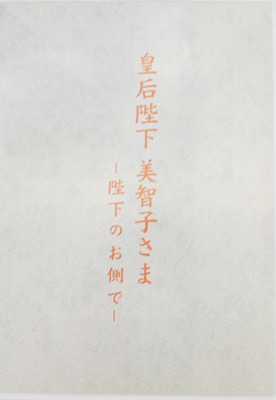 皇后陛下 美智子さま
―陛下のお側で―